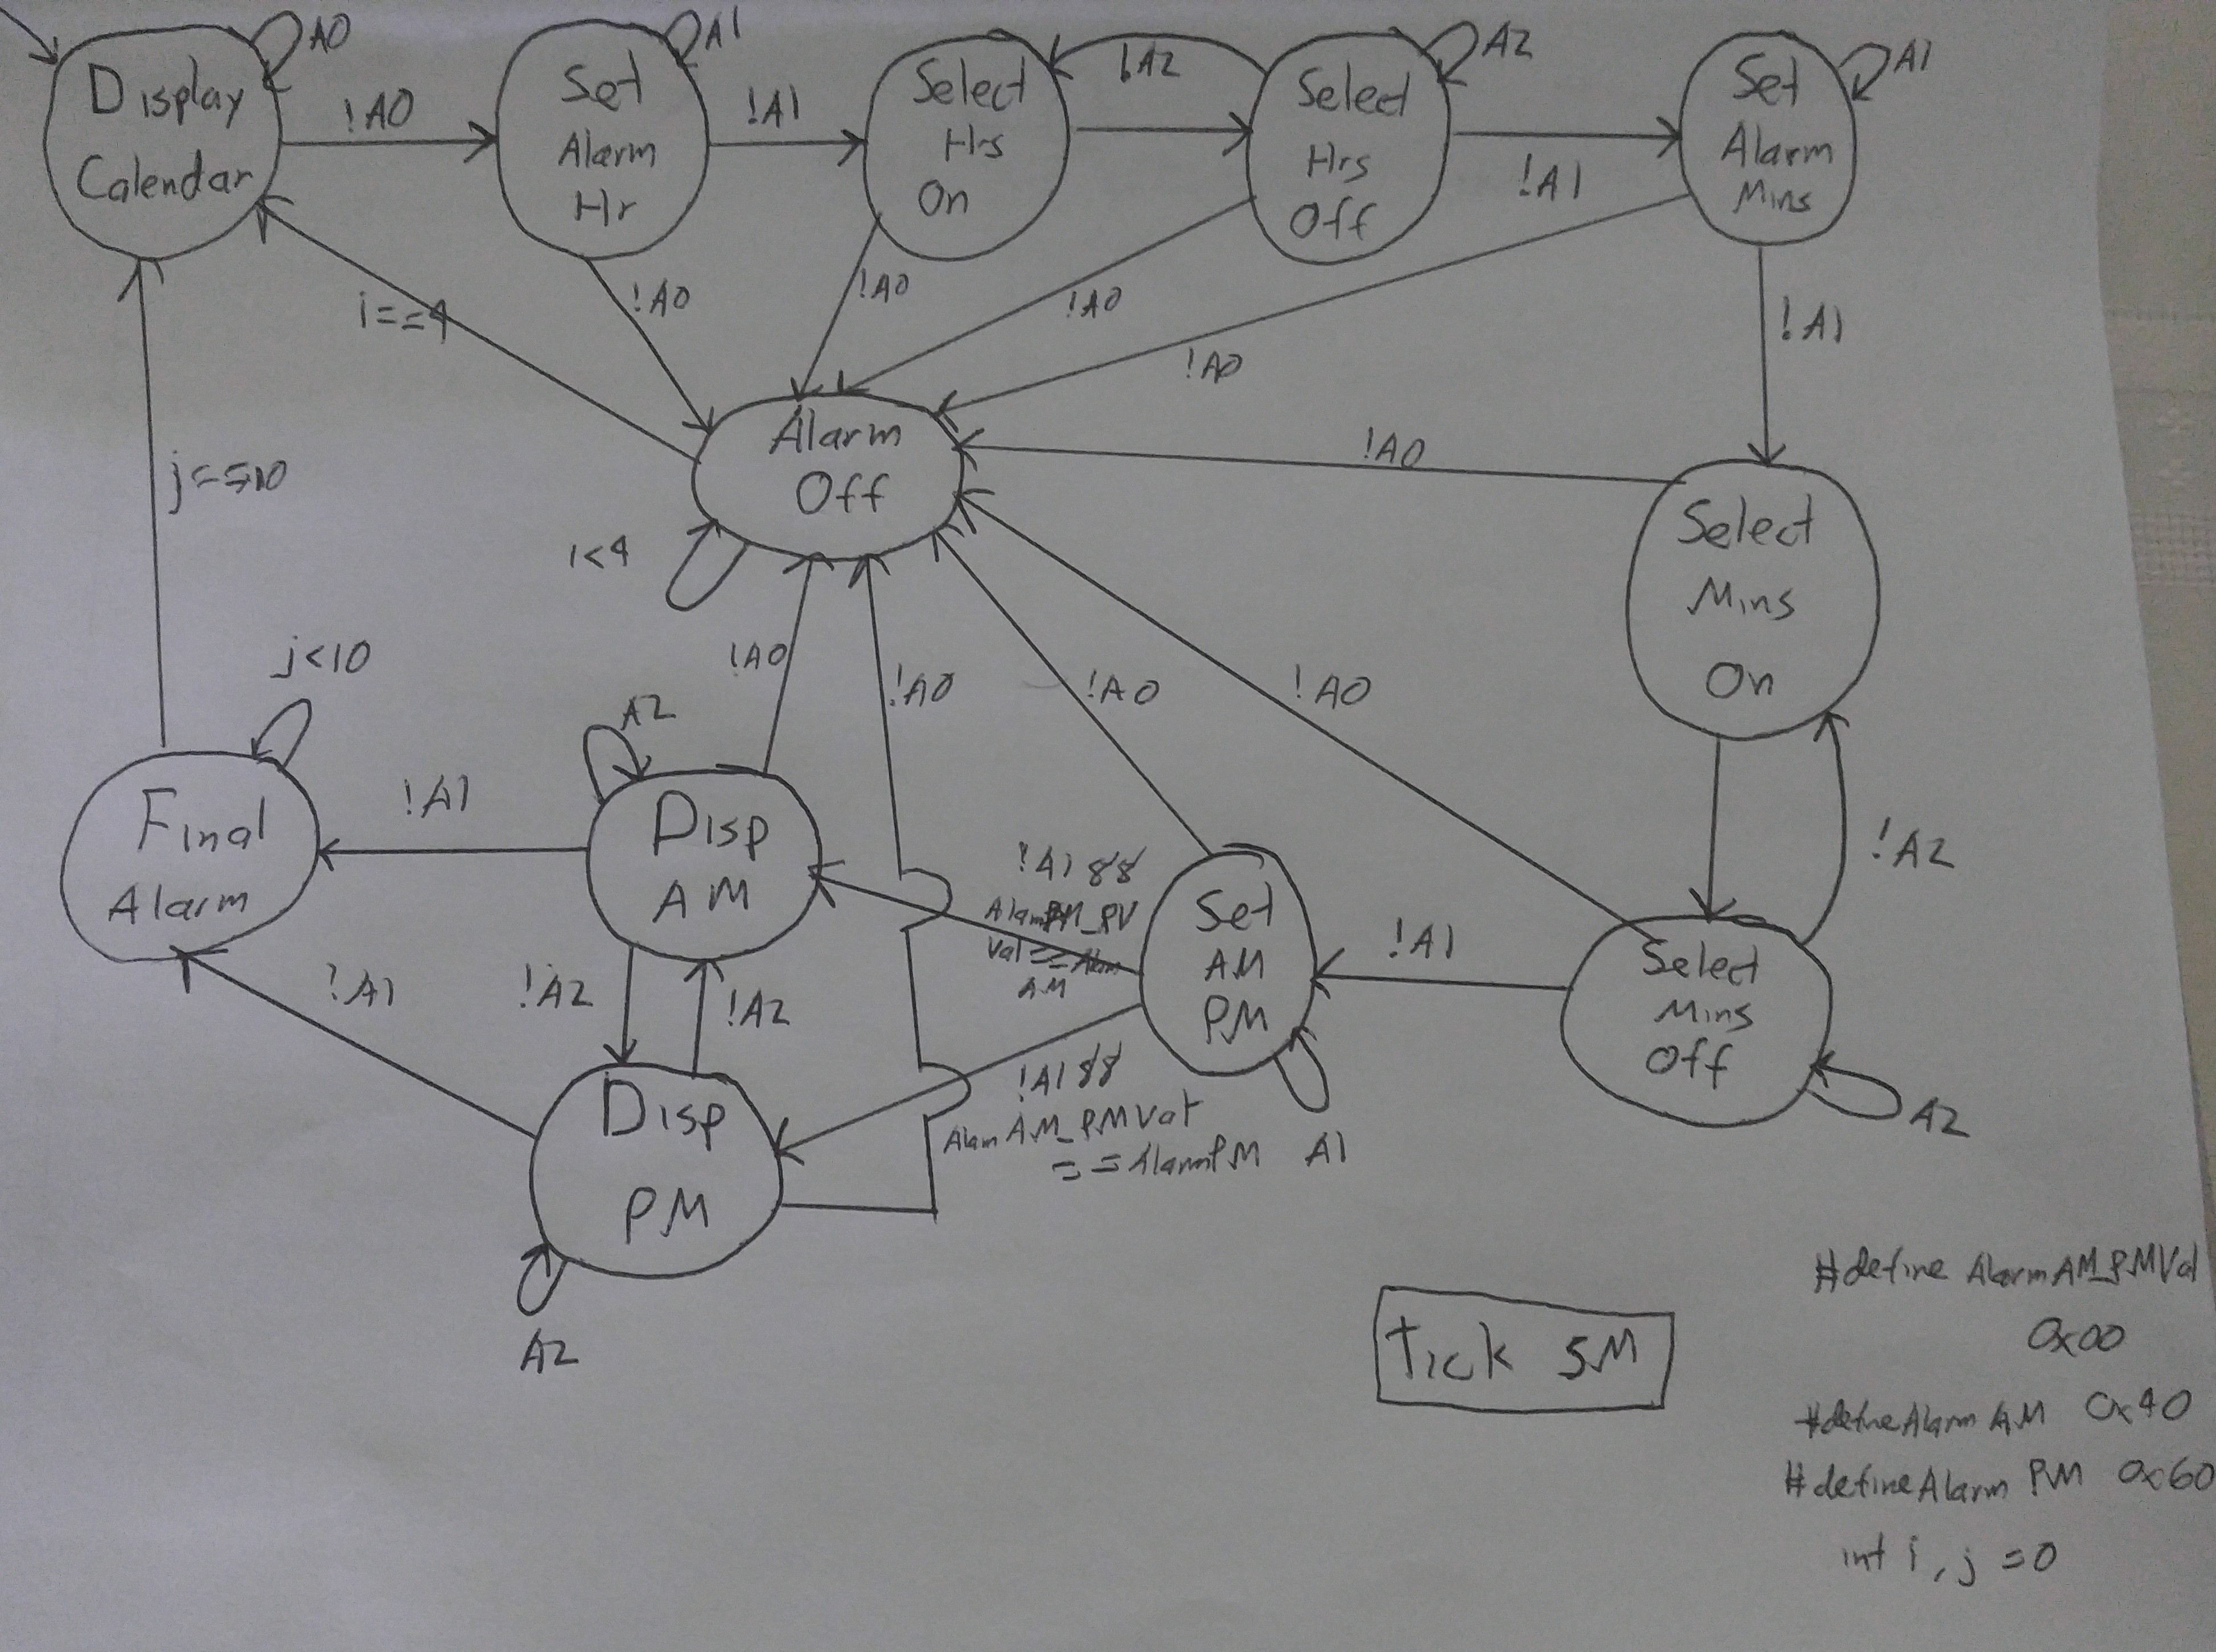 Display
Calendar
A0
!A0
Set
Alarm
Hr
A1
!A1
Select
Hrs
On
!A2
Select
Hrs
Off
A2
!A1
Set
Alarm
Mins
A1
i==4
!A0
!A0
!A0
!A0
!A1
Alarm
Off
i<4
!A0
j==10
Select
Mins
On
j<10
A2
!A0
!A0
!A0
!A0
Final
Alarm
!A1
Disp
AM
!A1 &&
AM
Set
AM
PM
!A1
!A2
Select
Mins
Off
A2
!A1
!A2
!A2
Disp
PM
A2
!A1 &&
AlarmAM_PMVal
==AlarmPM
A1
Tick SM
#define AlarmAM_PMVal
0x00
#define Alarm AM 0x40
#define Alarm PM 0x60
int i, j = 0